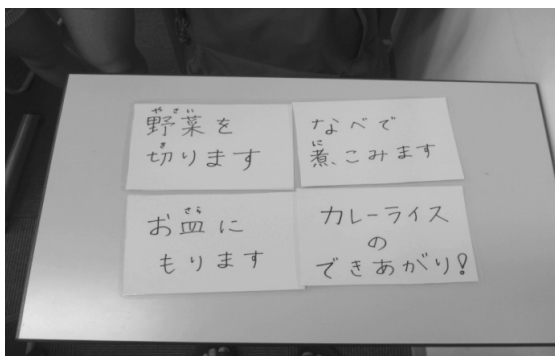 野菜を
切ります
なべで
煮こみます
お皿に
もります
カレーライス
の
できあがり!